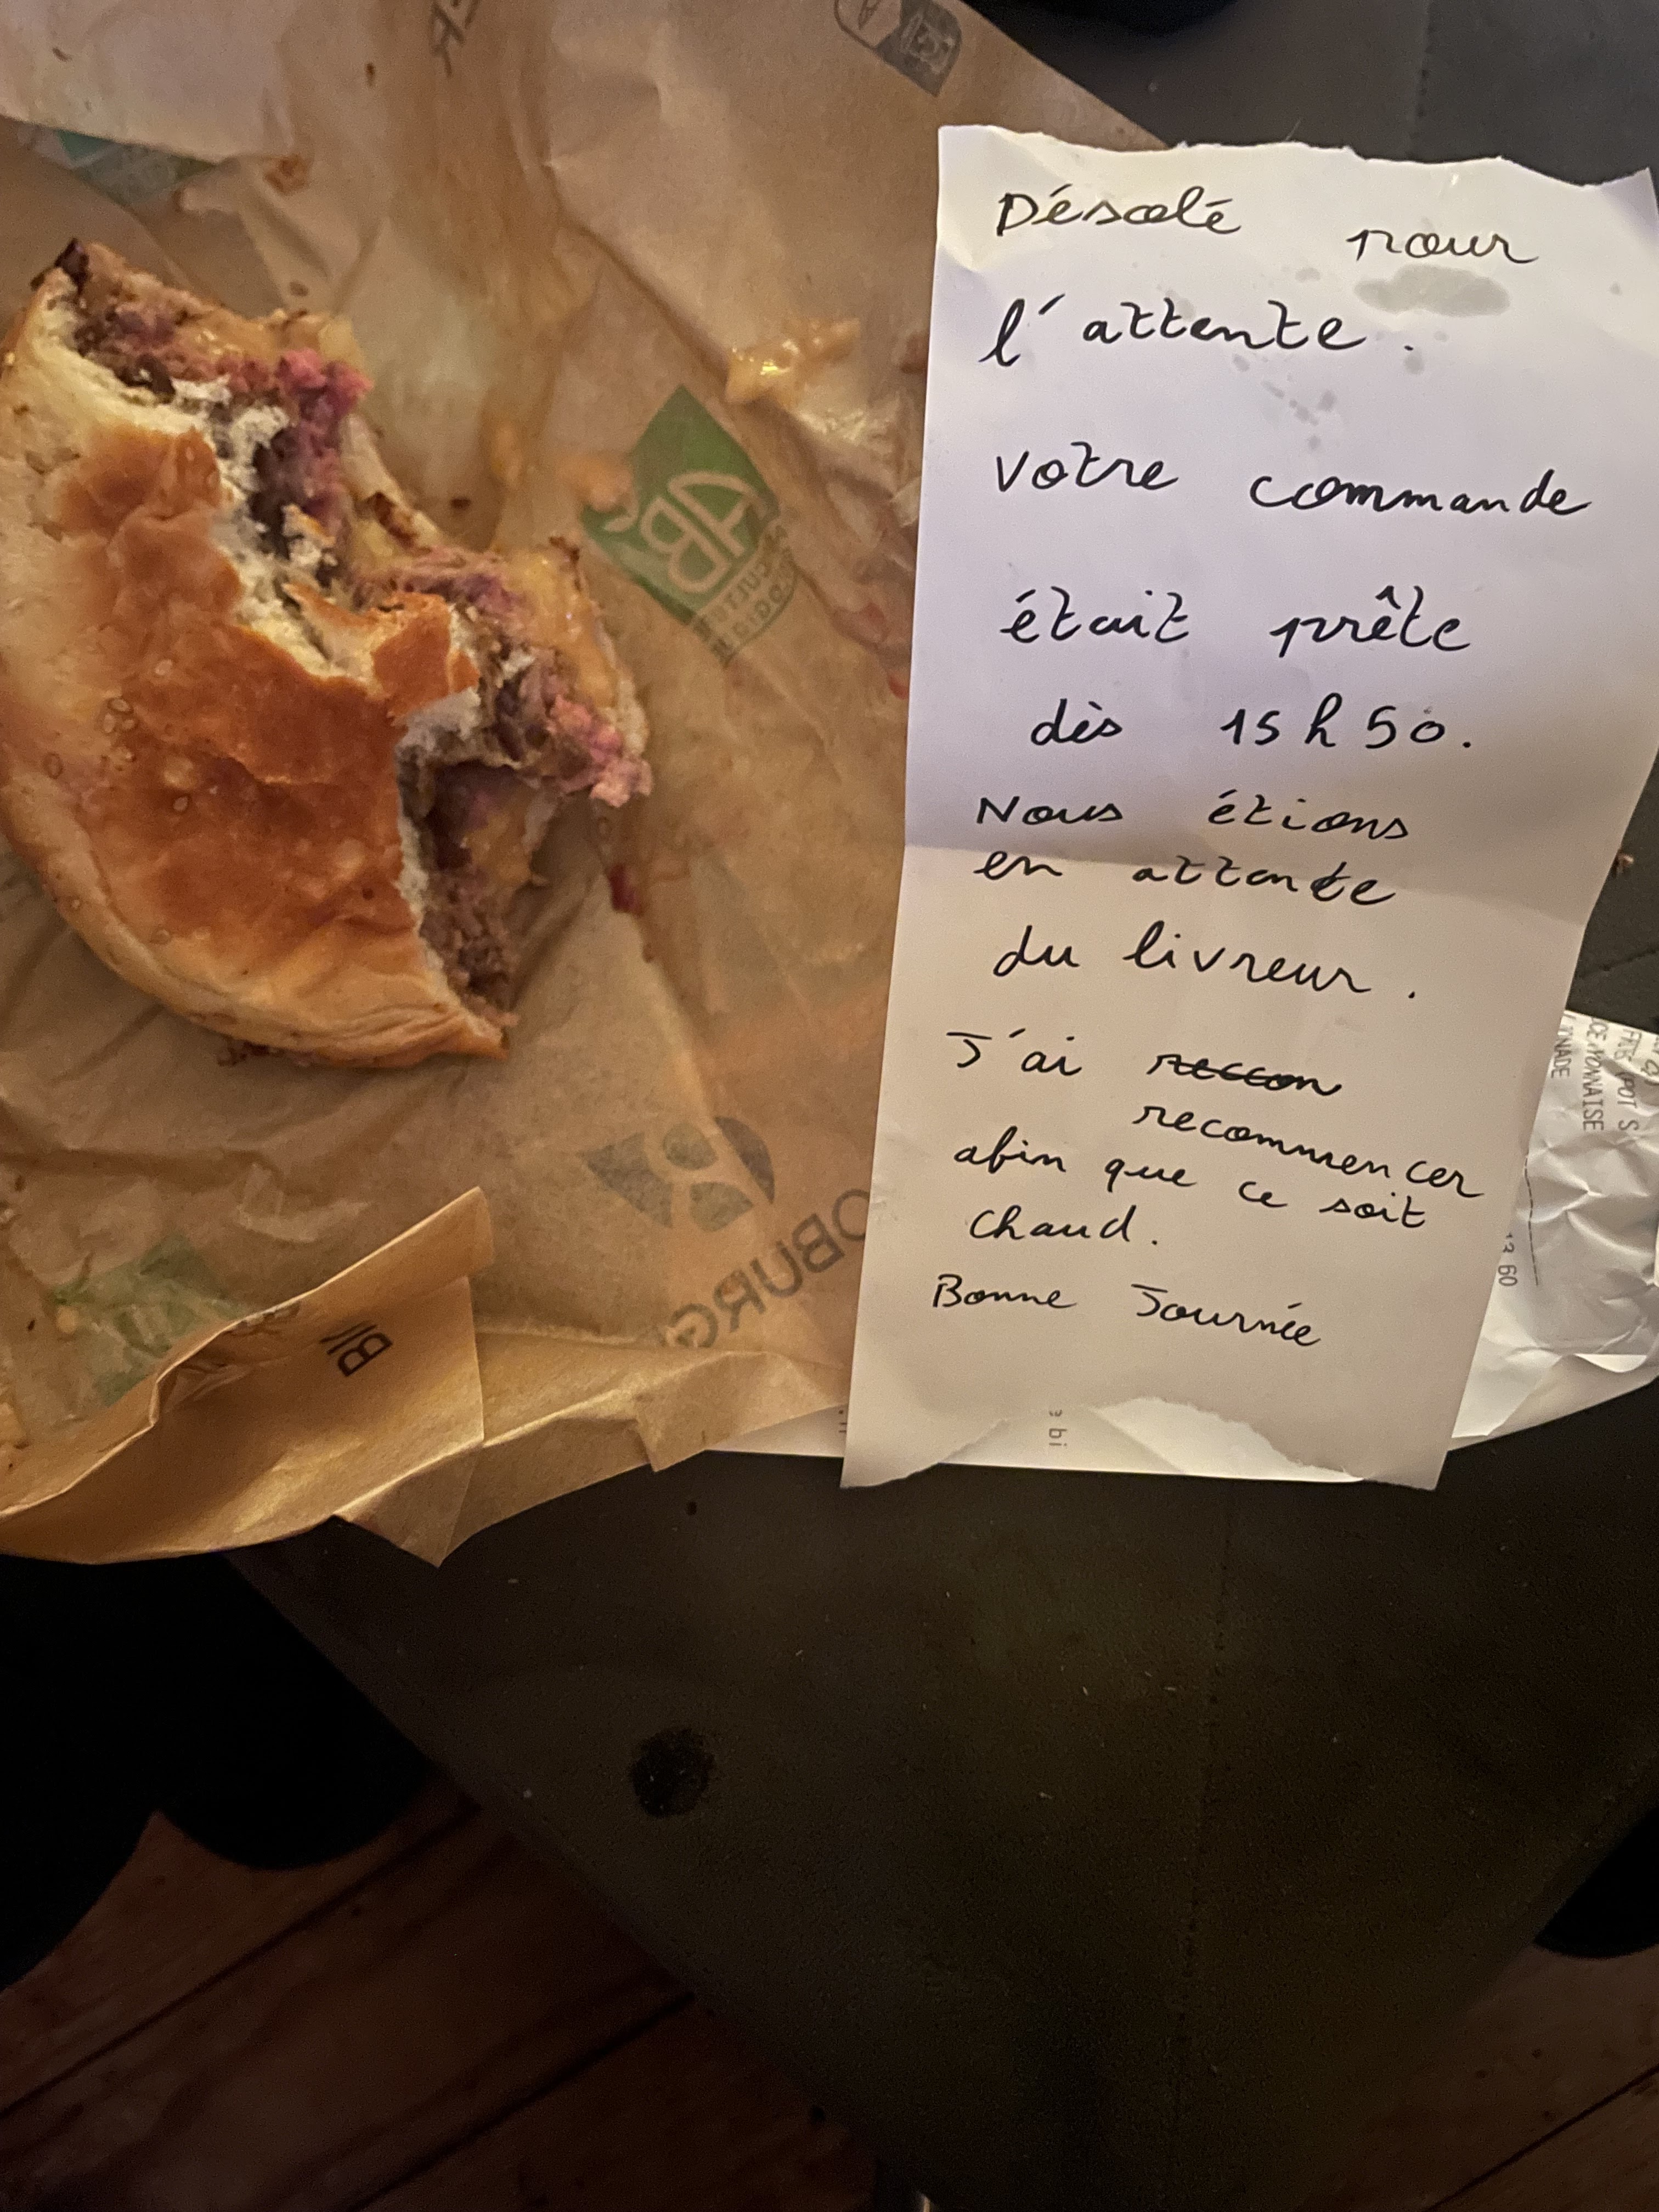 Désolé pour
l'attente.
Votre commande
était prête
dès 15h50.
Nous étions
en attente
du livreur.
J'ai reccon
recommencer
afin que ce soit
chaud.
Bonne Journée
AB
OBURG
BI
ER
bi
YONNAISE
NADE
POT S
13 60